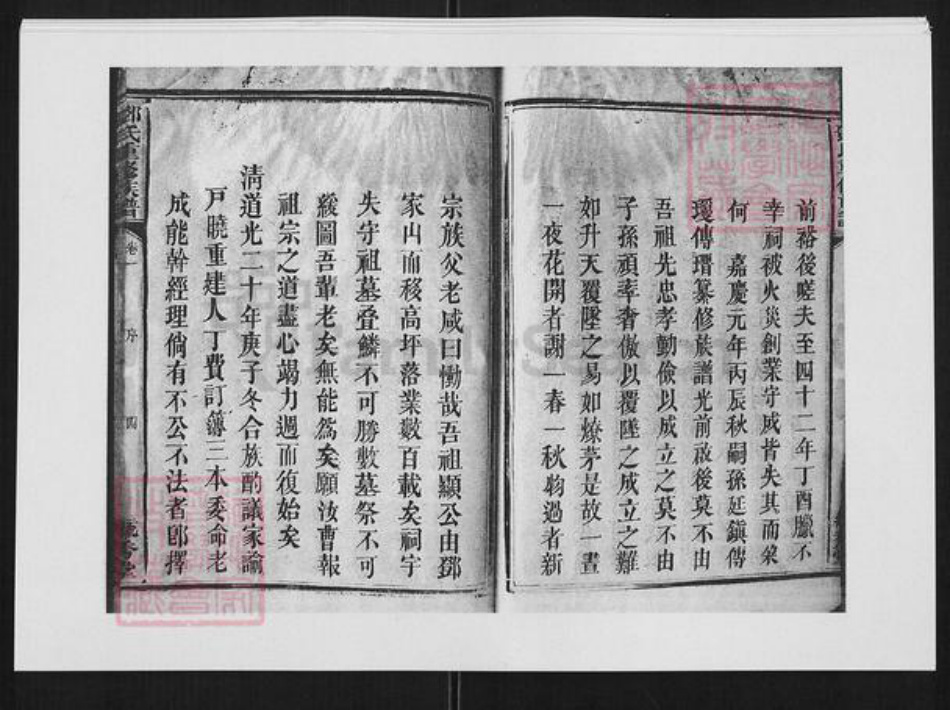 前裕後嗟夫至四十二年丁酉臘不
幸祠被火災創業守成皆失其而菜
何　嘉慶元年丙辰秋嗣孫廷鎮傳
環傳瑨纂修族譜光前啟後莫不由
吾祖先忠孝勤儉以成立之莫不由
子孫頑率奢傲以覆墜之成立之難
如升天覆墜之易如燎茅是故一晝
一夜花開者謝一春一秋物過者新
宗族父老咸曰慟哉吾祖顯公由鄧
家山而移高坪落業數百載矣祠宇
失守祖墓叠鱗不可勝數墓祭不可
緩圖吾輩老矣無能為矣願汝曹報
祖宗之道盡心竭力週而復始矣
清道光二十年庚子冬合族酌議家諭
戸曉重建人丁費訂簿三本委命老
成能幹經理倘有不公不法者卽擇
鄧氏重修族譜　卷一　序　四